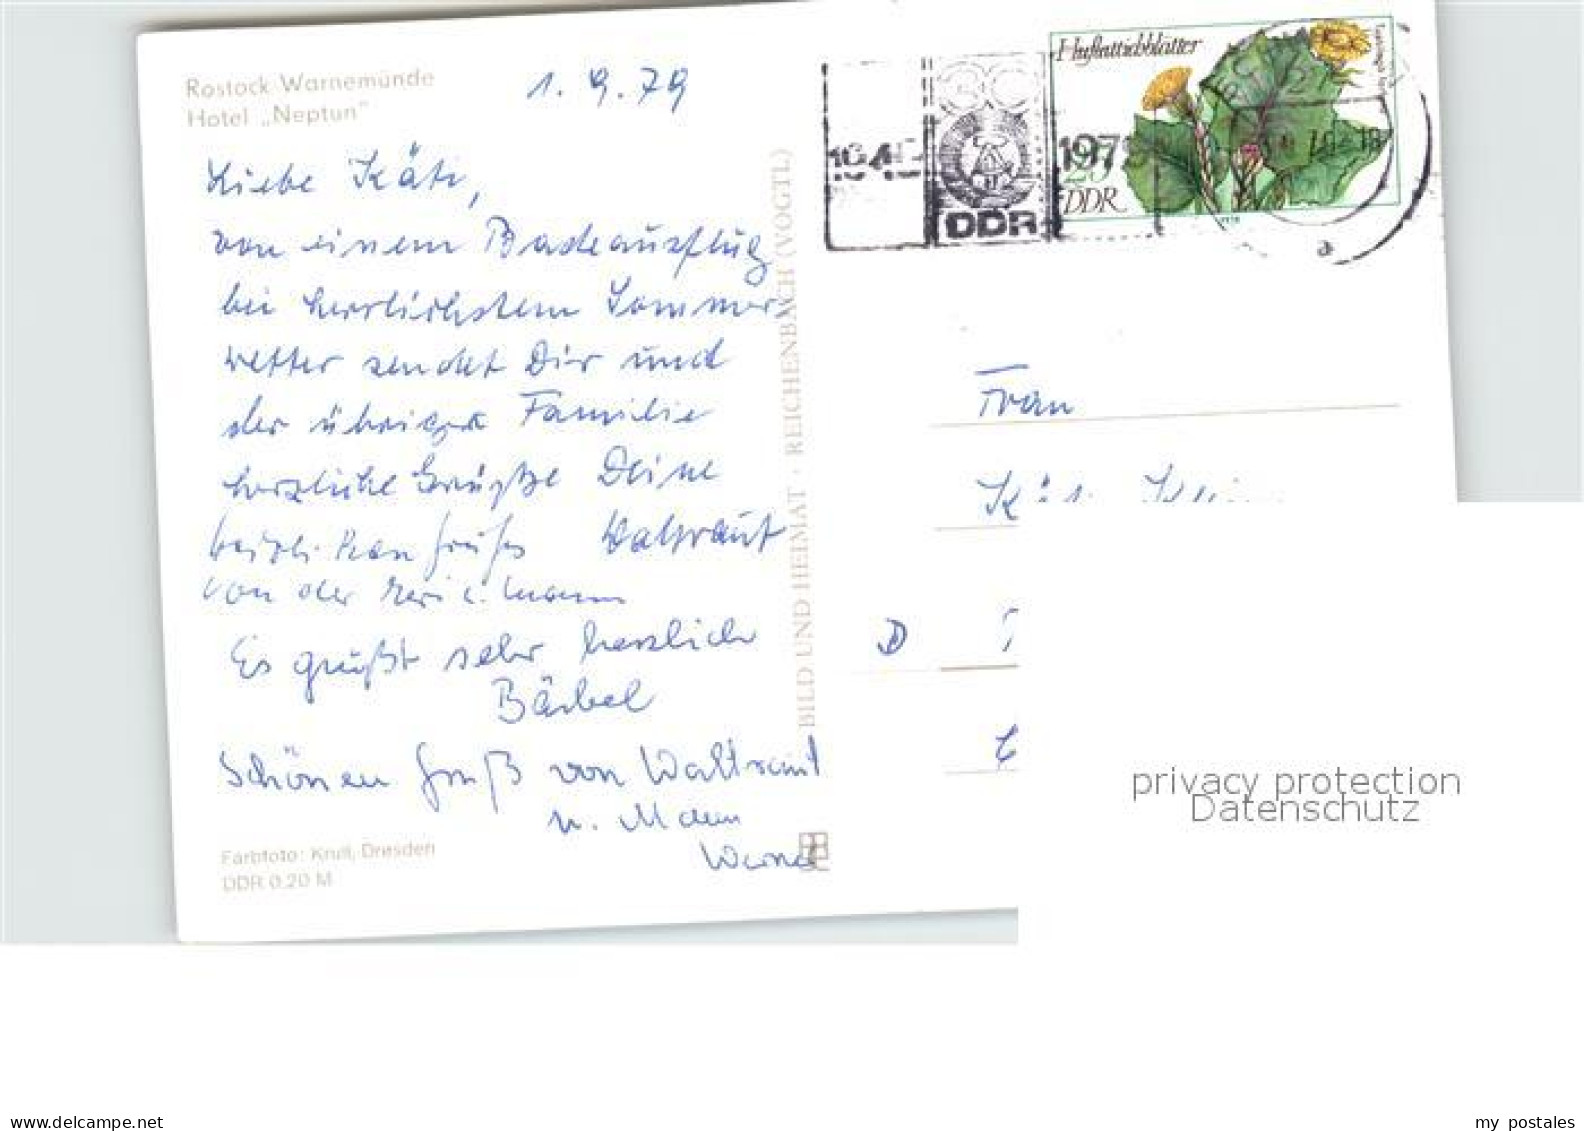 Rostock-Warnemünde
Hotel „Neptun"
1. 9. 79
Liebe Käte,
von einem Badeausflug
bei herrlichstem Sommer-
wetter sendet Dir und
der übrigen Familie
herzliche Grüße Deine
Waltraut
von der
Es grüßt sehr herzlich
Bärbel
Schönen Gruß von Waltraut
u. Mann
Werner
Farbfoto: Krull, Dresden
DDR 0,20 M
BILD UND HEIMAT · REICHENBACH (VOGTL)
Huflattichblätter
Tussilago
20
DDR
30
1949
1979
DDR
Frau
D
privacy protection
Datenschutz
www.delcampe.net
my_postales